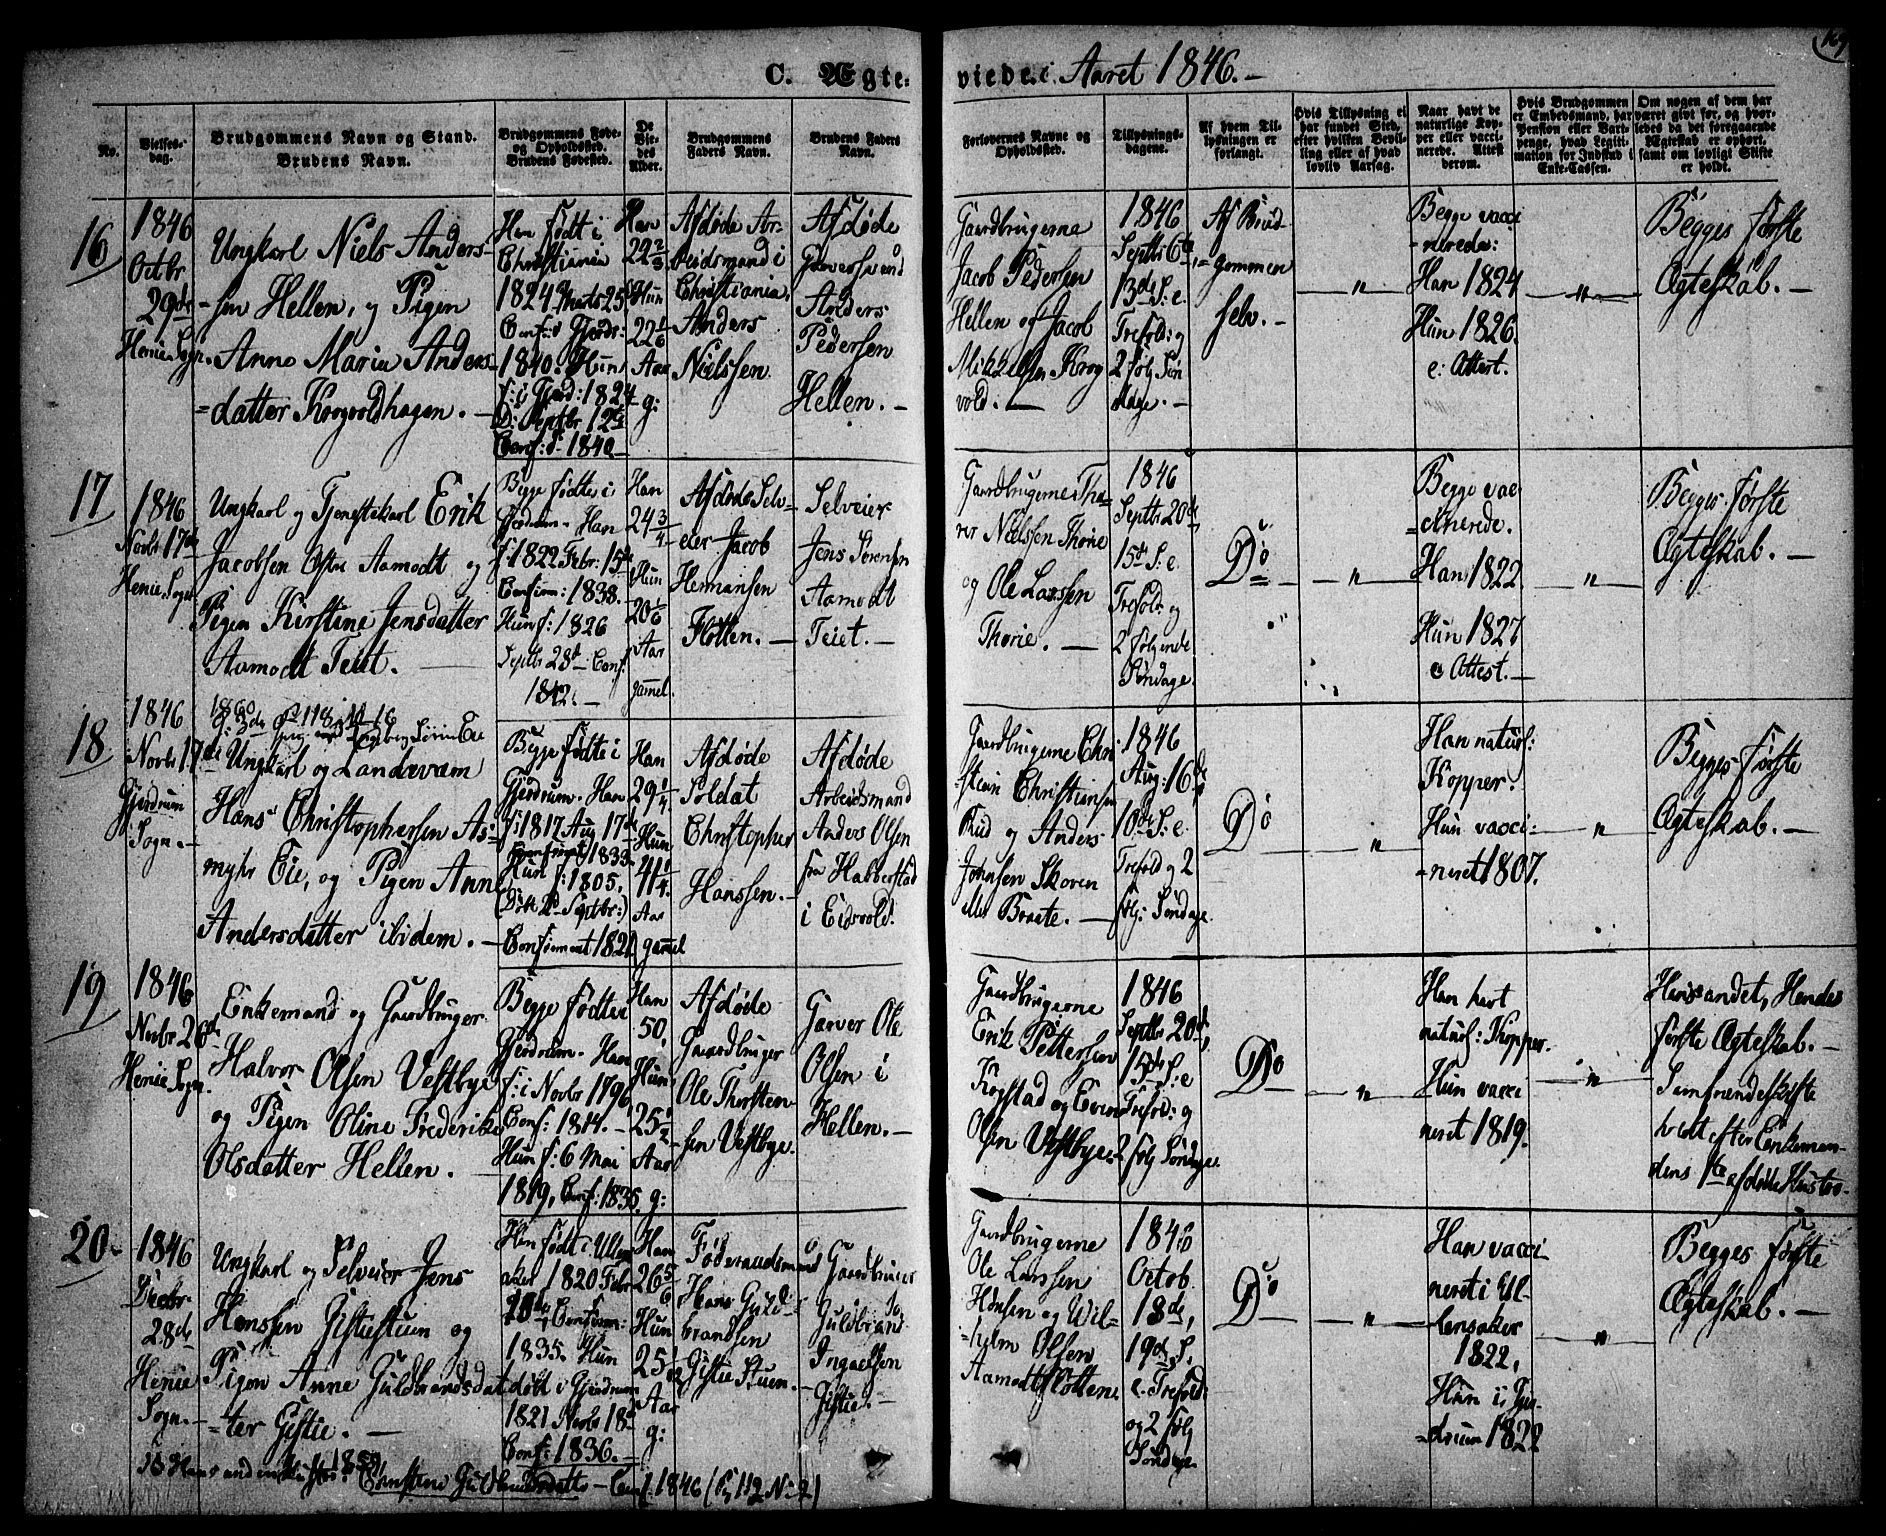 C. Ægte-
viede i Aaret 1846.-
169
No.
Vielses-
dag.
Brudgommens Navn og Stand.
Brudens Navn.
Brudgommens Føde-
og Opholdssted.
Brudens Fødested.
De
Vie-
des
Alder.
Brudgommens
Faders Navn.
Brudens Faders
Navn.
Forlovernes Navne og
Opholdssted.
Tillysnings-
dagene.
Af hvem Til-
lysningen er
forlangt.
Hvis Tillysning ei
har fundet Sted,
efter hvilken Bevil-
ling eller af hvad
lovlig Aarsag.
Naar havt de
naturlige Kop-
per eller vacci-
nerede. Attest
derom.
Hvis Brudgommen
er Embedsmand, har
Pension eller Vart-
penge, hvad Legiti-
mation for Indskud i
Enke-Cassen.
Om nogen af dem har
været gift før, og hvor-
ledes da det foregaaende
Ægteskab er ophørt,
samt om lovligt Skifte
er holdt.
16
1846
Octbr
29de
Henie Sogn.
Ungkarl Niels Anders-
sen Hellen, og Pigen
Anne Maria Anders-
datter Krogvoldhagen. -
Han Født i
Christiania
1824 Marts 25
Conf: i Gjerdr:
1840. Hun
f: i Gjerd: 1824
D: Septbr 12te
Conf: d. 1840 -
Han
22 2/3
Hun
22 1/6
Aar
g:
Afdøde Ar-
beidsmand i
Christiania,
Anders
Nielssen
Afdøde
Gaversvend
Anders
Pedersen
Hellen. -
Gaardbrugerne
Jacob Pedersen
Hellen og Jacob
Mikkelsen Krog
vold. -
1846
Septbr 6te,
13de S: e.
Trefold: og
2 følg Søn
dage. -
Af Brud-
gommen
selv. -
- " -
Begge vacci
nerede:
Han 1824
Hun 1826.
e: Attest.
- " -
Begges første
Ægteskab. -
17
1846
Novbr 17de
Henie Sogn
Ungkarl og Tjenestekarl Erik
Jacobsen Østre Aamodt og
Pigen Kirstine Jensdatter
Aamodt Teiet. -
Begge fødte i
Gjerdrum. Han
f: 1822 Febr: 15de
Confirm: 1838.
Hun f: 1826
Septbr 28de Conf.
1842. -
Han
24 3/4
Hun
20 1/6
Aar
gammel.
Afdøde Selv-
eier Jacob
Hermansen
Flotten. -
Selveier
Jens Sørensen
Aamodt
Teiet. -
Gaardbrugerne Tho-
rer Nielssen Thorie
og Ole Larssen
Thorie. -
1846
Septbr 20de,
15de S: e.
Trefold: og
2 følgende
Søndage.
Do
- " -
Begge vac
cinerede.
Han 1822.
Hun 1827
e Attest. -
- " -
Begges første
Ægteskab. -
18
1846
Novbr 17de
Gjerdrum
Sogn. -
Ungkarl og Landeværn
Hans Christophersen As-
myhr Eie, og Pigen Anne
Andersdatter ibidem. -
Begge fødte i
Gjerdrum. Han
f: 1817 Aug 17de
Confirmert 1833
Hun f: 1805.
Confirmeret 1821.
Han
29 1/4
Hun
41 1/4
Aar
gamel
Afdøde
Soldat
Christopher
Hanssen. -
Afdøde
Arbeidsmand
Anders Olsen
fra Habberstad
i Eidsvold.
Gaardbrugerne Chri-
stian Christiansen
Rud og Anders
Johnsen Skoven
eller Braate. -
1846
Aug: 16de,
10de S: e.
Trefold og 2
følg: Søndage.
Do
- " -
Han naturl:
Kopper.
Hun vacci:
neret 1807.
- " -
Begges første
Ægteskab. -
19
1846
Novbr 26de
Henie Sogn.
Enkemand og Gaardbruger
Halvor Olsen Vestbye
og Pigen Oline Frederike
Olsdatter Hellen. -
Begge Fødte i
Gjerdrum. Han
f: i Novbr 1796
Conf: 1814. -
Hun f: 6 Mai
1819, Conf: 1835.
Han
50,
Hun
25 1/2
Aar
g:
Afdøde
Gaardbruger
Ole Thorsten-
sen Vestbye.
Garver Ole
Olsen i
Hellen. -
Gaardbrugerne
Erik Pettersen
Kogstad og Even
Olsen Vestbye.
1846
Septbr 20de,
15de S: e
Trefold: og
2 følg Søndage.
Do
- " -
Han havt
naturl: Kopper.
Hun vacci
neret 1819.
- " -
Hans andet, Hendes
første Ægteskab. -
Samfrændeskifte
holdt efter Enkeman-
dens 1te afdøde Hustro. -
20
1846
Decbr
28de
Henie
Sogn. -
Ungkarl og Selveier Jens
Hanssen Gistiestuen og
Pigen Anne Guldbrandsdat
ter Gistie. -
Han født i Ullen
aker 1820 Febr
20de, Confirm:
1835. Hun
født i Gjerdrum
1821 Novbr 18de
Conf: 1836. -
Han
26 5/6
Hun
25 1/12
Aar
g:
Føderaadsmand
Hans Guld-
brandsen
Gistie Stuen. -
Gaardbruger
Guldbrand
Ingvalsen
Gistie. -
Gaardbrugerne
Ole Larssen
Hønsen og Wil-
helm Olssen
Aamodtflotten.
1846
Octob.
18de,
19de S.
e. Trefold:
og 2 følg
Søndage
Do
- " -
Han vacci
neret i Ul-
lensaker
1822,
Hun i Gjer
drum 1822
- " -
Begges første
Ægteskab. -